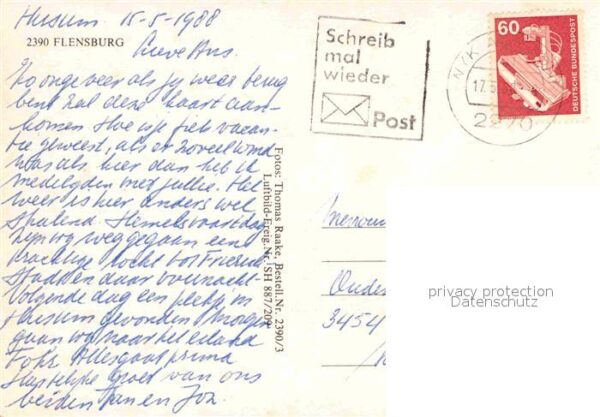 Husum 15-5-1988
2390 FLENSBURG
Lieve Ans.
Zo ongeveer als jij weer terug
bent zal deze kaart aan-
komen Hoe is je fiets vacan-
tie geweest, als er zoveel wind
was als hier dan heb ik
medelijden met jullie. Het
weer is hier anders wel
stralend. Hemelvaartsdag
zijn wij weggegaan een
prachtige tocht
Stadden daar overnacht
Volgende dag een plekje in
Husum gevonden Morgen
gaan wij naar het eiland
Föhr. Alles gaat prima
Hartelijke groet van ons
beiden Jan en
Fotos: Thomas Raake, Bestell Nr. 2390/3
Luftbild-Freig.Nr. SH 887/209
Schreib
mal
wieder
Post
60
DEUTSCHE BUNDESPOST
17.5
2270
Mevrouw
Oude
3454
privacy protection
Datenschutz